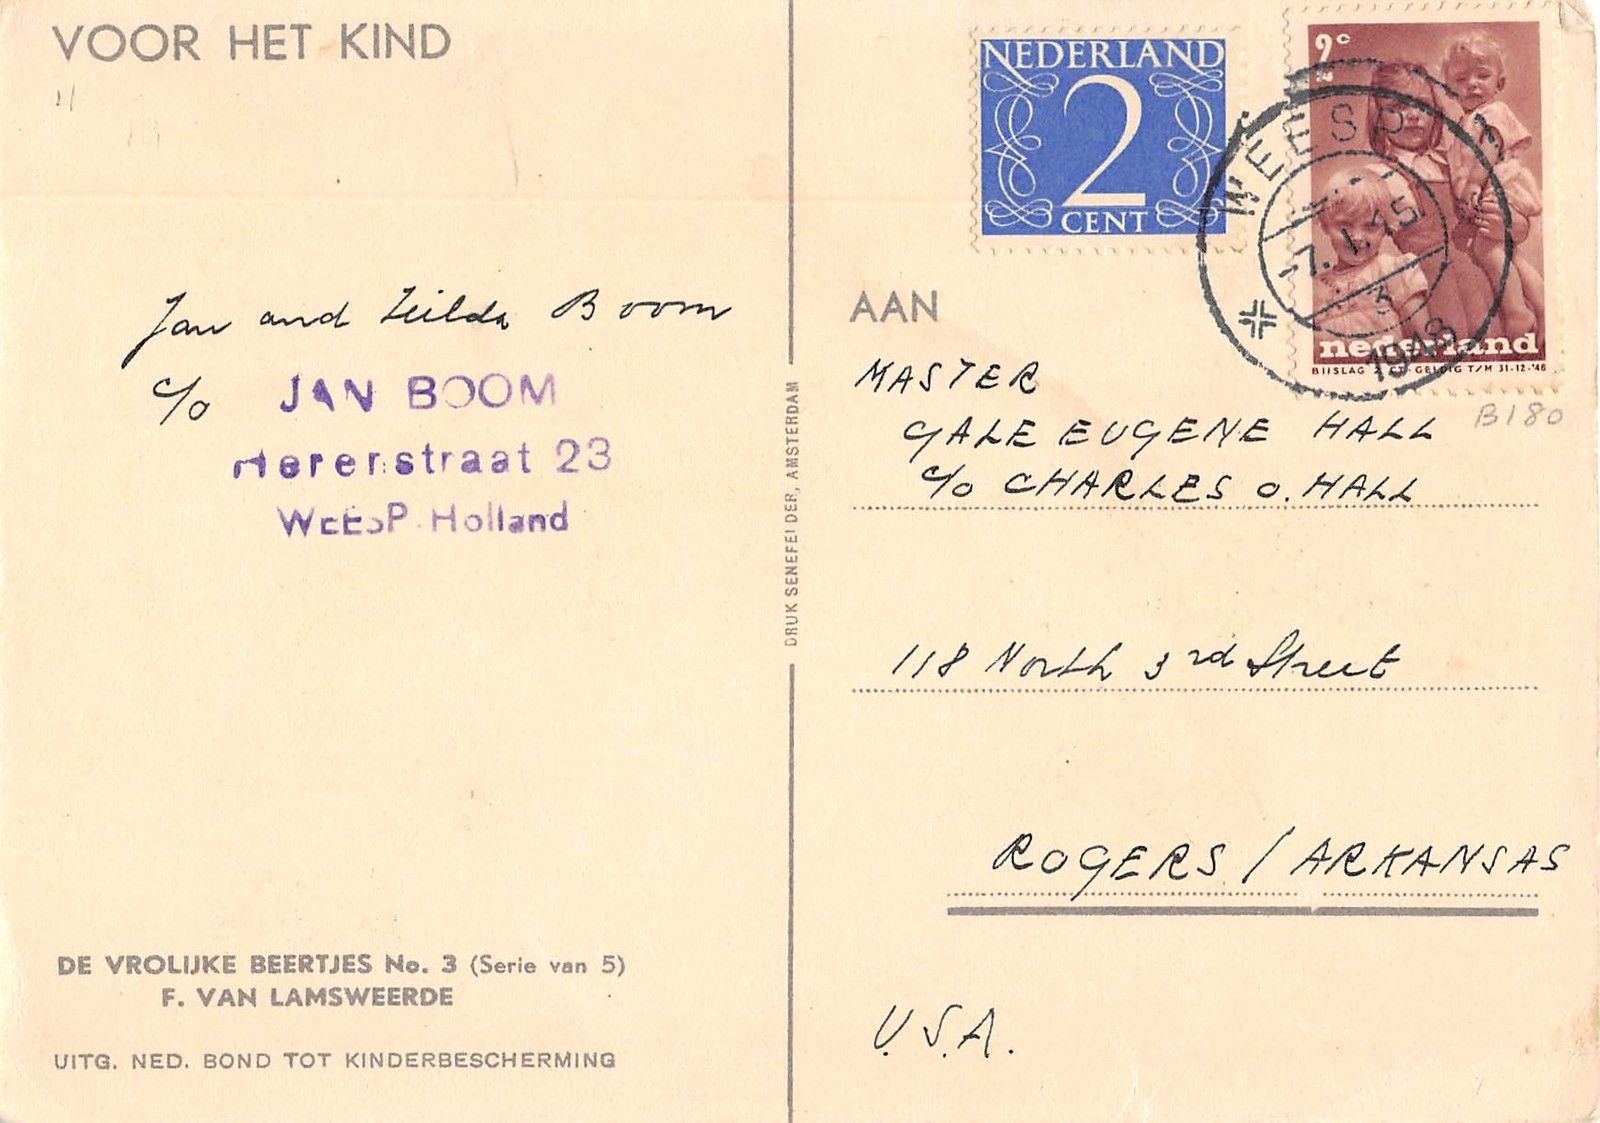 VOOR HET KIND
Jan and Hilda Boom
c/o JAN BOOM
Herenstraat 23
WEESP-Holland
DE VROLIJKE BEERTJES No. 3 (Serie van 5)
F. VAN LAMSWEERDE
UITG. NED. BOND TOT KINDERBESCHERMING
DRUK SENEFELDER, AMSTERDAM
NEDERLAND
2
CENT
2c
nederland
BIJSLAG 2 CT· GELDIG T/M 31-12-'48
WEESP 1
-7. 1. 15
1948
B180
AAN
MASTER
GALE EUGENE HALL
c/o CHARLES O. HALL
118 North 3rd Street
ROGERS / ARKANSAS
U.S.A.